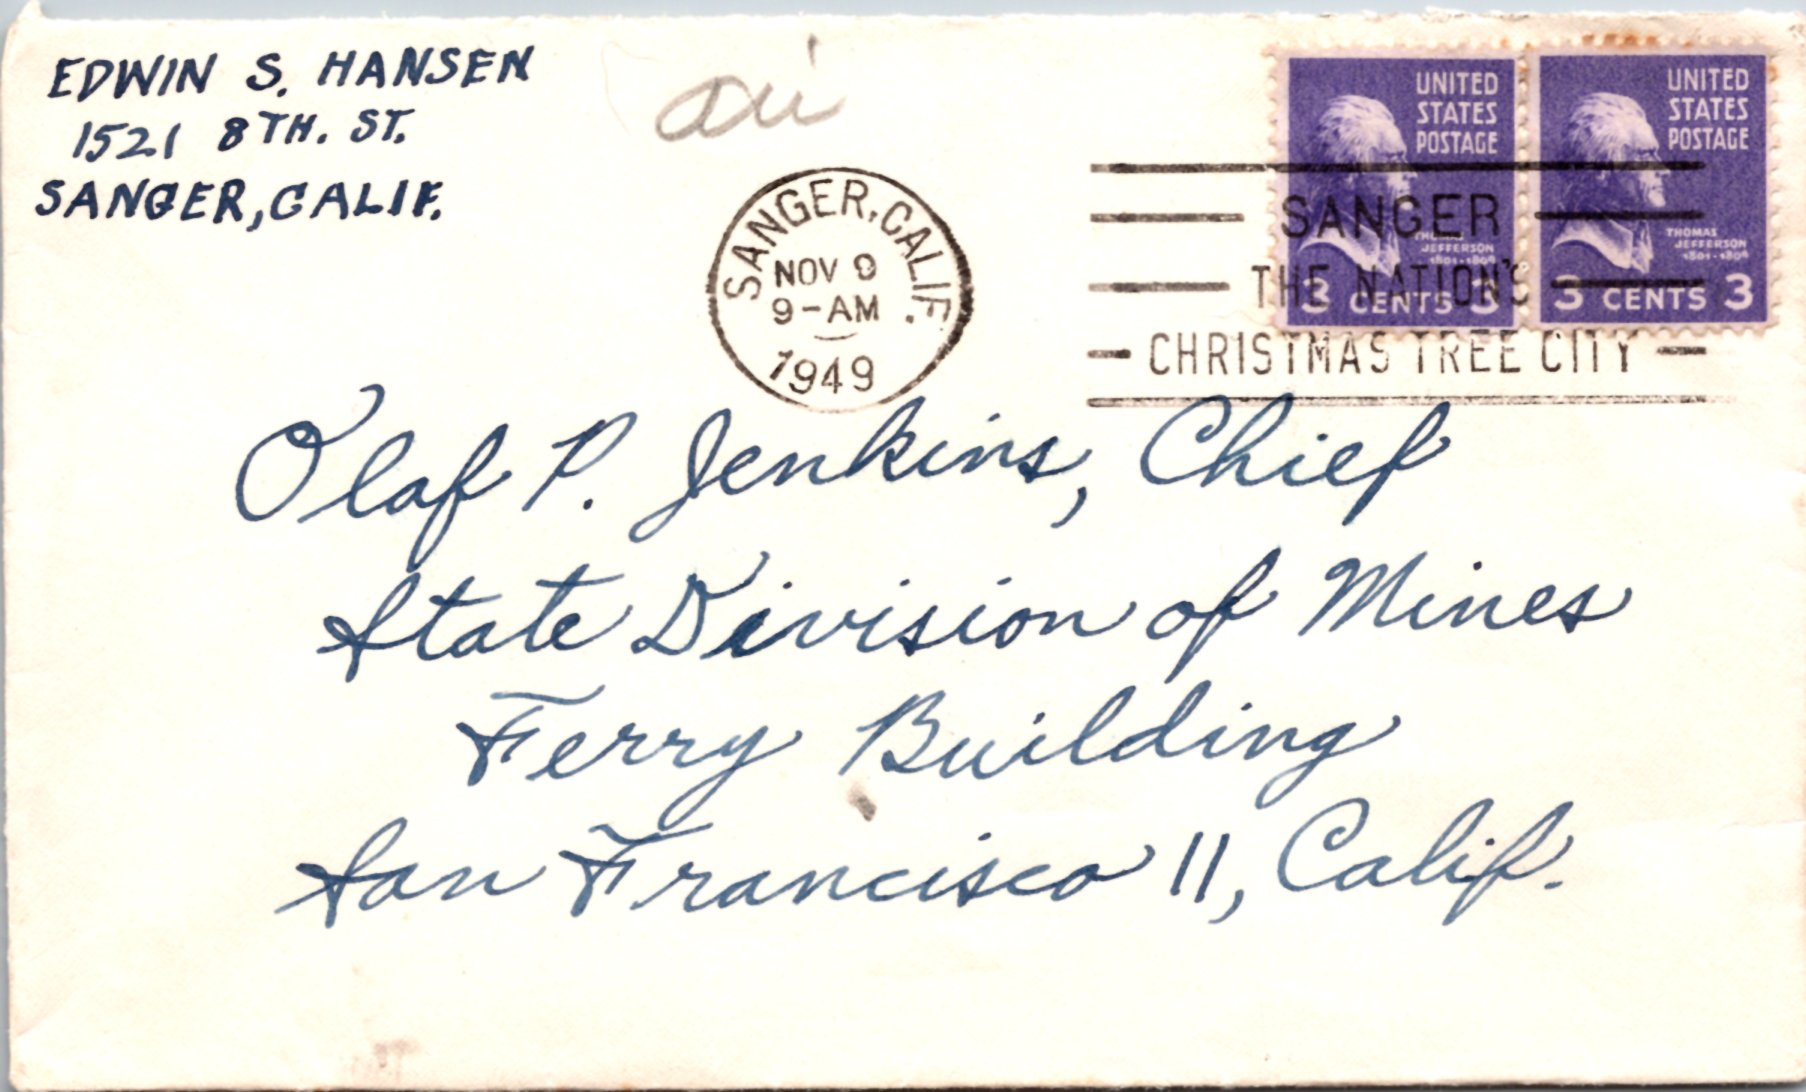 EDWIN S. HANSEN
1521 8TH. ST.
SANGER, CALIF.
SANGER, CALIF.
NOV 9
9-AM
1949
SANGER
THE NATION'S
CHRISTMAS TREE CITY
UNITED
STATES
POSTAGE
THOMAS
JEFFERSON
1801-1809
3 CENTS 3
UNITED
STATES
POSTAGE
THOMAS
JEFFERSON
1801-1809
3 CENTS 3
Olaf P. Jenkins, Chief
State Division of Mines
Ferry Building
San Francisco 11, Calif.